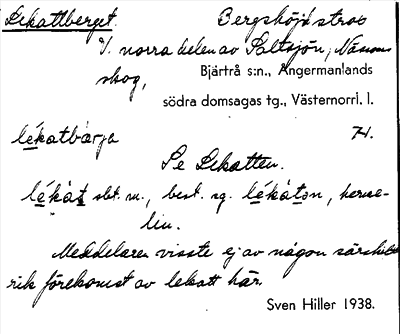 Lekattberget. Bergshöjd strax
V. norra delen av Saltsjön, Näsoms
skog, Bjärtrå s:n., Ångermanlands
södra domsagas tg., Västernorrl. l.
lékatbärja 74.
Se Lekatten.
lékàt sbt. m., best. sg. lékàtən, herme-
lin.
Meddelaren visste ej av någon särskilt
rik förekomst av lekatt här.
Sven Hiller 1938.